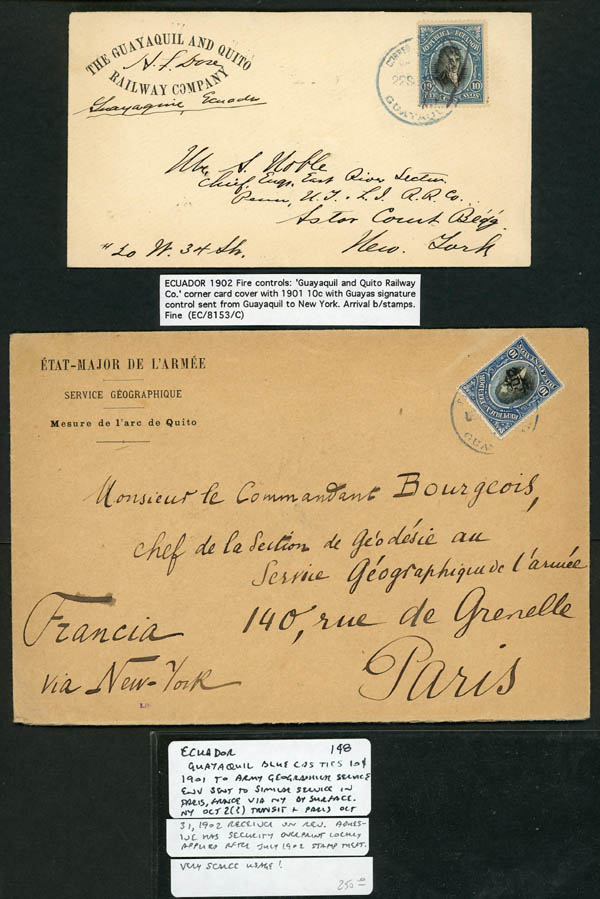 THE GUAYAQUIL AND QUITO
RAILWAY COMPANY
Guayaquil, Ecuador
GUAYAQUIL
REPUBLICA DEL ECUADOR
10 10
S. Noble
Chief Engr. East River Section
Penn, N.Y. & L.I. R.R. Co.
Astor Court Bldg.
"20 W. 34 St. New York
ECUADOR 1902 Fire controls: 'Guayaquil and Quito Railway
Co.' corner card cover with 1901 10c with Guayas signature
control sent from Guayaquil to New York. Arrival b/stamps.
Fine (EC/8153/C)
ÉTAT-MAJOR DE L'ARMÉE
SERVICE GÉOGRAPHIQUE
Mesure de l'arc de Quito
10 10
ECUADOR
Monsieur le Commandant Bourgeois,
chef de la Section de Géodésie au
Service Géographique de l'armée
140, rue de Grenelle
Paris
Francia
via New-York
ECUADOR 148
GUAYAQUIL BLUE CDS TIES 10¢
1901 TO ARMY GEOGRAPHIC SERVICE
ENV SENT TO SIMILAR SERVICE IN
PARIS, FRANCE VIA NY BY SURFACE.
NY OCT 2(?) TRANSIT + PARIS OCT
31, 1902 RECEIVER ON REV. ADHES-
IVE HAS SECURITY OVERPRINT LOCALLY
APPLIED AFTER JULY 1902 STAMP THEFT.
VERY SCARCE USAGE!
250.00